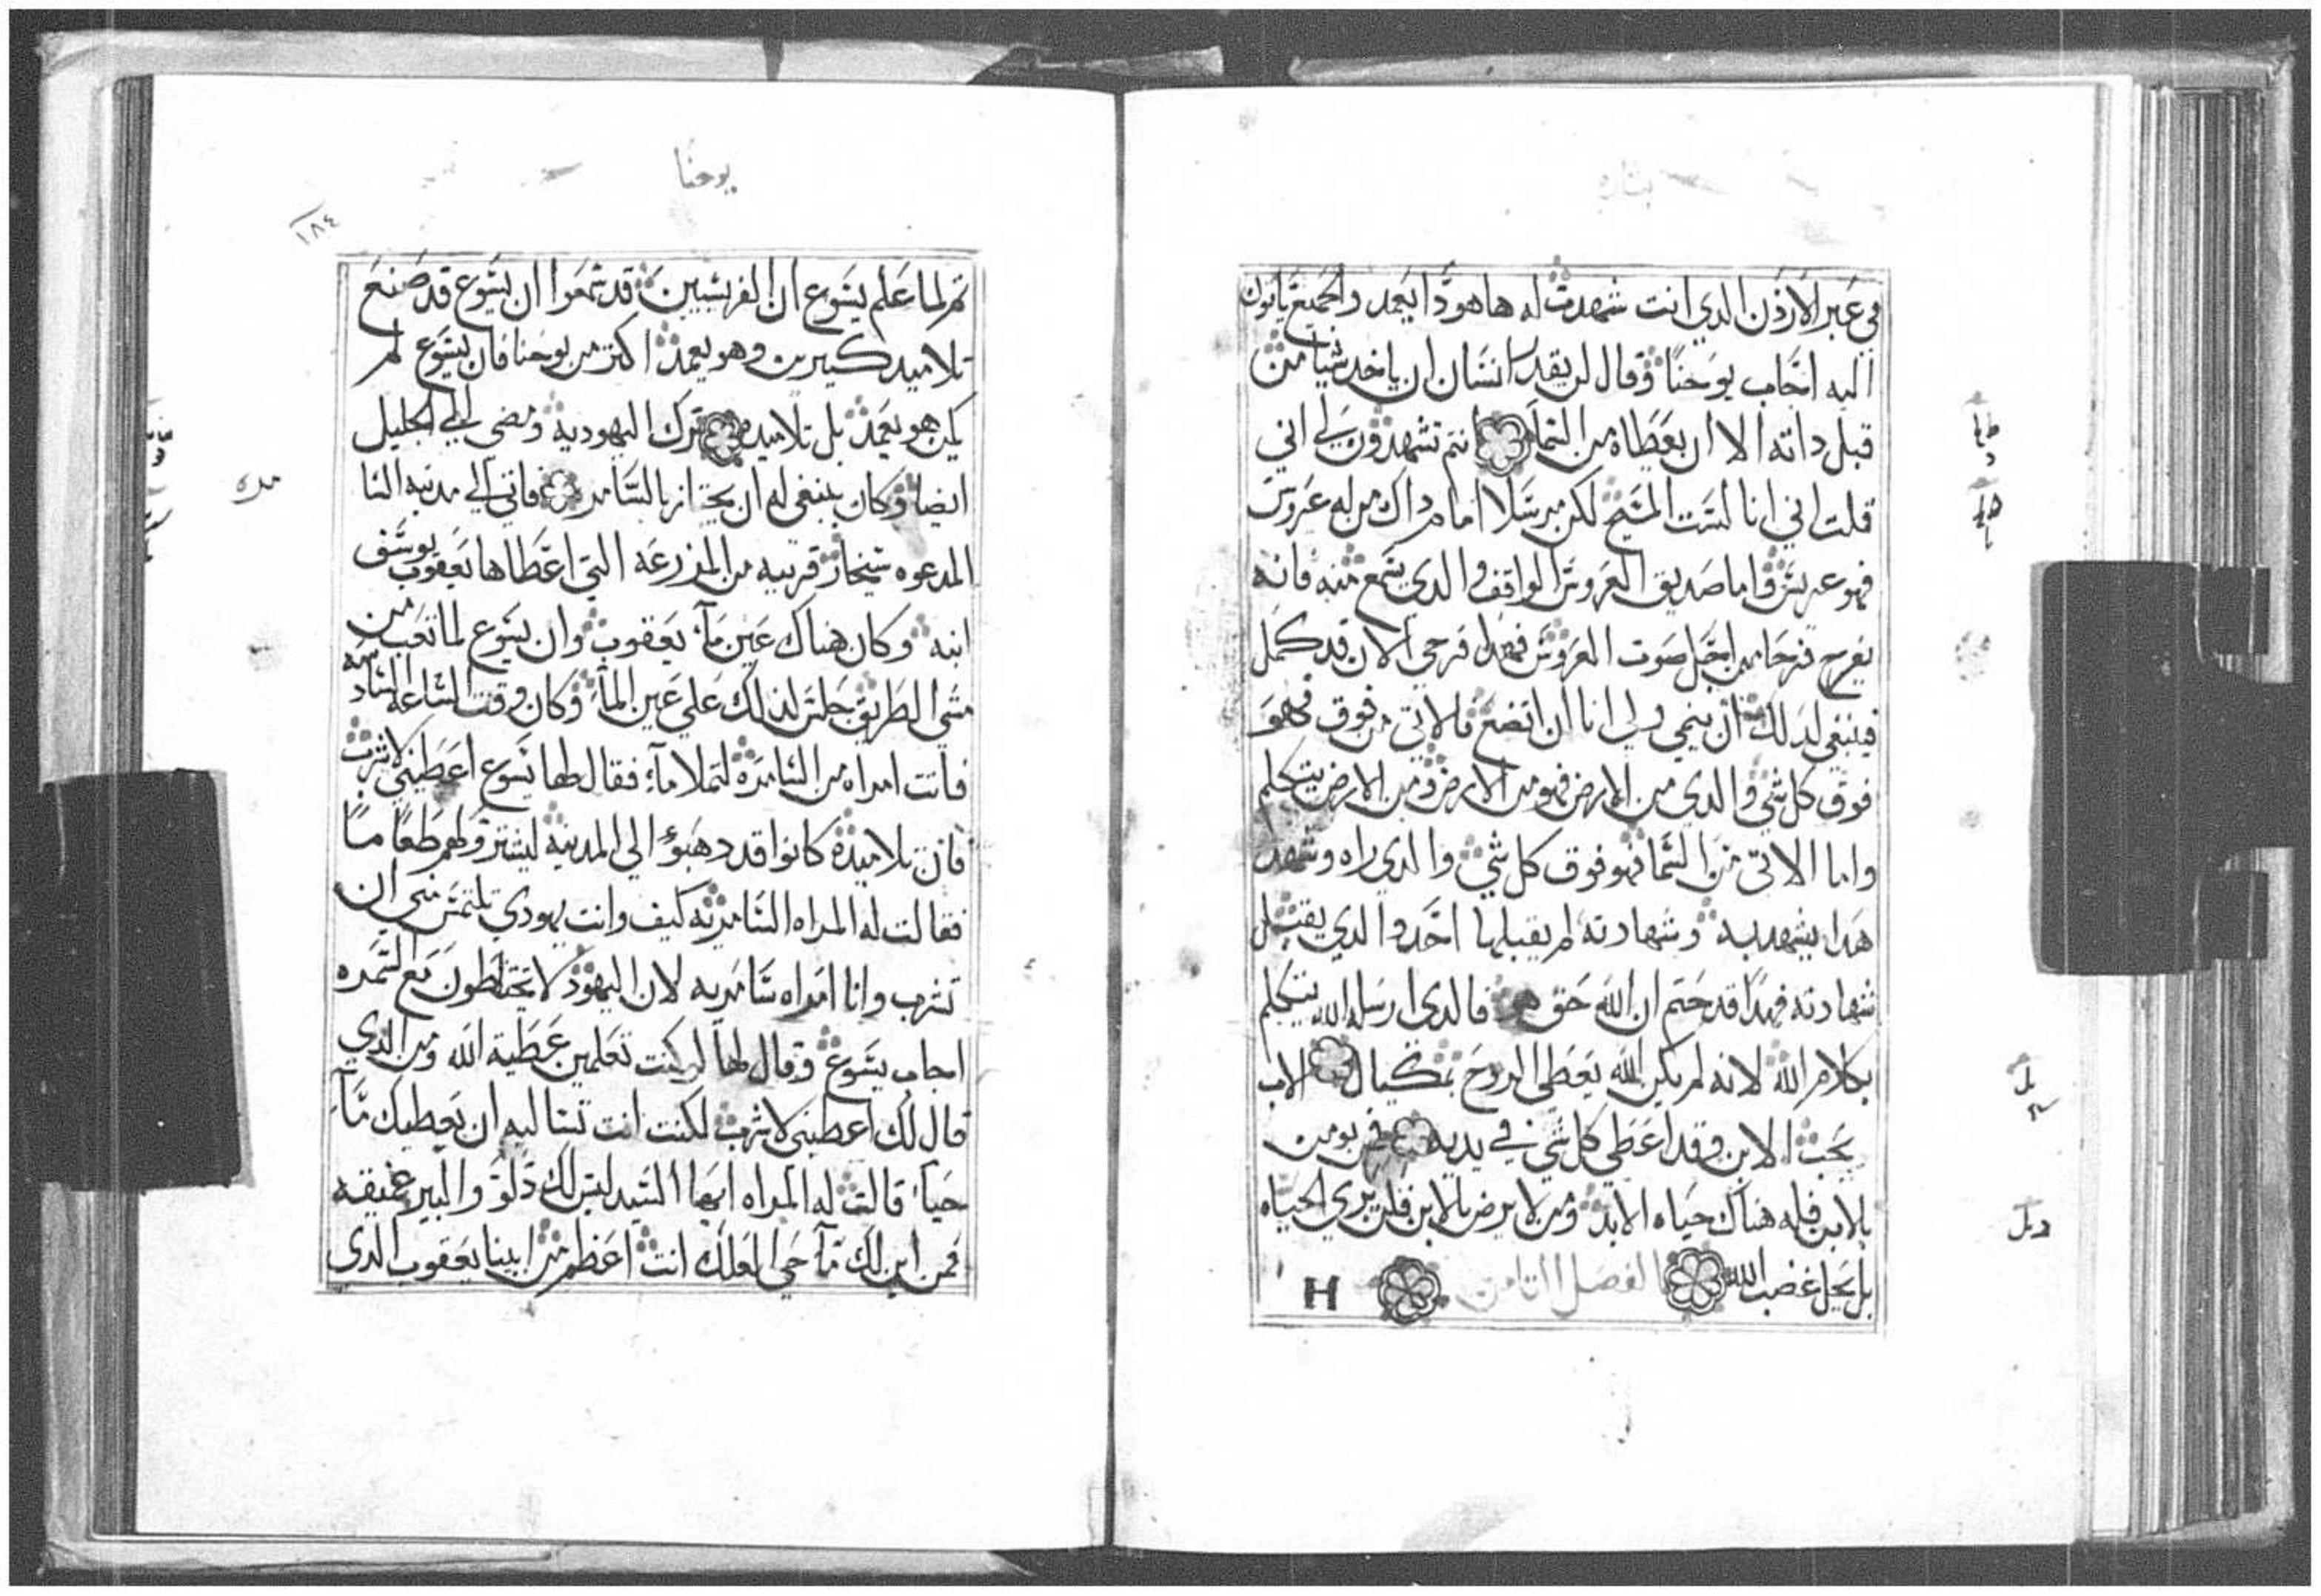 في عبر الاردن الدي انت شهدت له ها هودا يعمد والجميع ياتون
اليه اجاب يوحنا وقال لن يقدر انسان ان ياخد شيا من
قبل داته الا ان يعطاه من السما انتم تشهدون لي اني
قلت اني انا لست المسيح لكن مرسلا امام داك من له عروس
فهو عريس واما صديق العروس الواقف والدي يسمع منه فانه
يفرح فرحا من اجل صوت العروس فهدا فرحي الان قد كمل
فينبغي لدلك ان ينمي ولي انا ان اتضع فالاتي من فوق فهو
فوق كل شي والدي من الارض فهو من الارض ومن الارض يتكلم
واما الاتي من السما فهو فوق كل شي والدي راه وشهد
هدا يشهد به وشهادته لم يقبلها احد والدي يقبل
شهادته فهدا قد ختم ان الله حق هو فالدي ارسله الله يتكلم
بكلام الله لانه لم يكن الله يعطي الروح بمكيال الاب
يحب الابن وقد اعطي كل شي في يديه فمن يومن
بالابن فله هناك حياه الابد ومن لا يرض بالابن فلن يري الحياه
بل يحل غضب الله الفصل الثامن H
يوحنا
١٨٤
ثم لما علم يسوع ان الفريسيين قد سمعوا ان يسوع قد صنع
تلاميد كثيرين وهو يعمد اكثر من يوحنا فان يسوع لم
يكن هو يعمد بل تلاميده ترك اليهوديه ومضي الي الجليل
ايضا وكان ينبغي له ان يجتاز بالسامره فاتي الي مدينه السا
المدعوه سيخار قريبه من المزرعه التي اعطاها يعقوب يوسف
ابنه وكان هناك عين مآ يعقوب وان يسوع لما تعب من
مشي الطريق جلس لدلك علي عين المآ وكان وقت الساعه السادسه
فاتت امراه من السامره لتملا مآء فقال لها يسوع اعطيني لاشرب
فان تلاميده كانوا قد دهبوء الي المدينه ليشتروا لهم طعاما
فقالت له المراه السامريه كيف وانت يهودي تلتمس مني ان
تشرب وانا امراه سامريه لان اليهود لا يختلطون مع السمره
اجاب يسوع وقال لها لو كنت تعلمين عطية الله ومن الدي
قال لك اعطيني لاشرب لكنت انت تساليه ان يعطيك مآ
حيا قالت له المراه ايها السيد ليس لك دلو والبير عميقه
فمن اين لك مآ حي العلك انت اعظم من ابينا يعقوب الدي